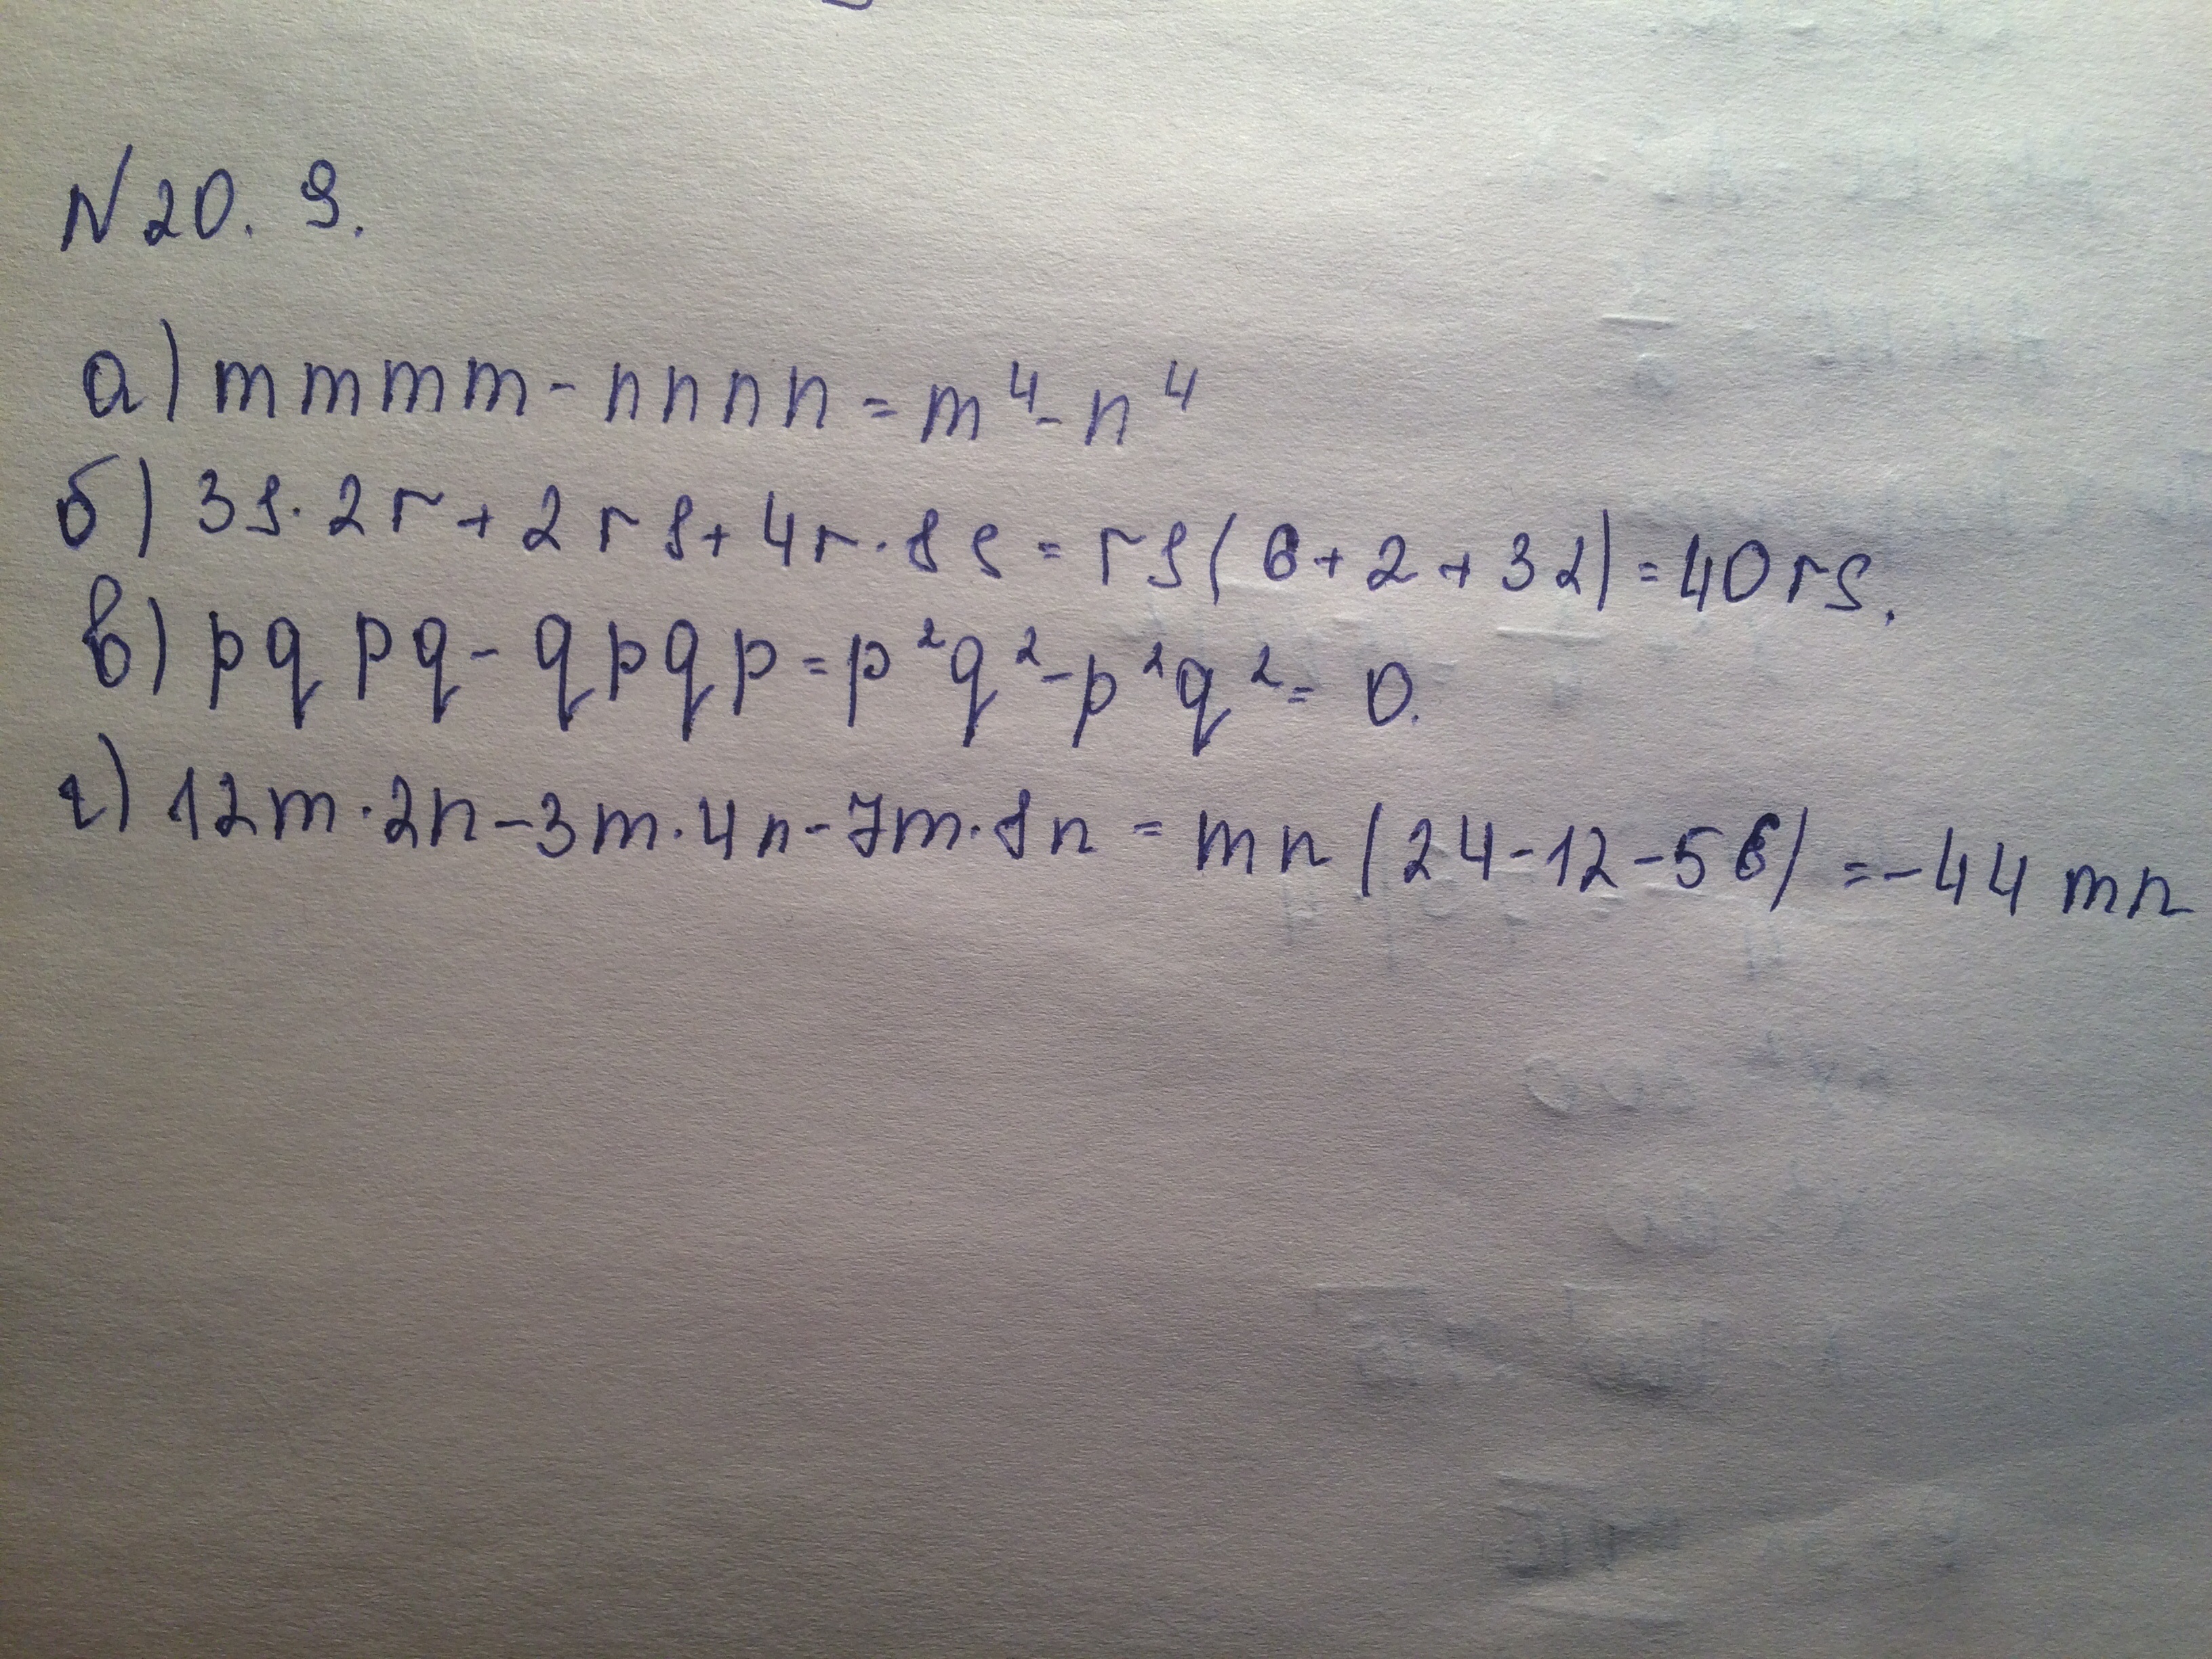 N 20. 9.
а) mmmm - nnnn = m⁴ - n⁴
б) 3s · 2r + 2rs + 4r · 8s = rs(6 + 2 + 32) = 40rs.
в) pqpq - qpqp = p²q² - p²q² = 0.
г) 12m · 2n - 3m · 4n - 7m · 8n = mn(24 - 12 - 56) = -44mn